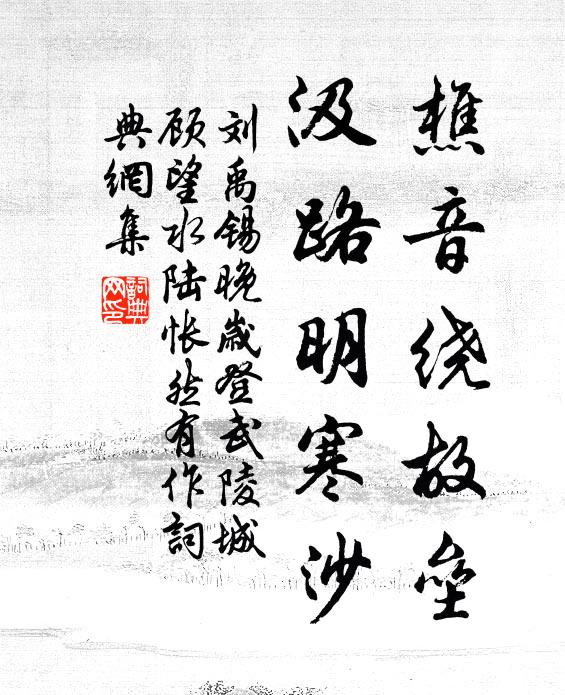 樵音绕故垒
汲路明寒沙
刘禹锡晚岁登武陵城
顾望水陆怅然有作詞
典網集
詞典
网印